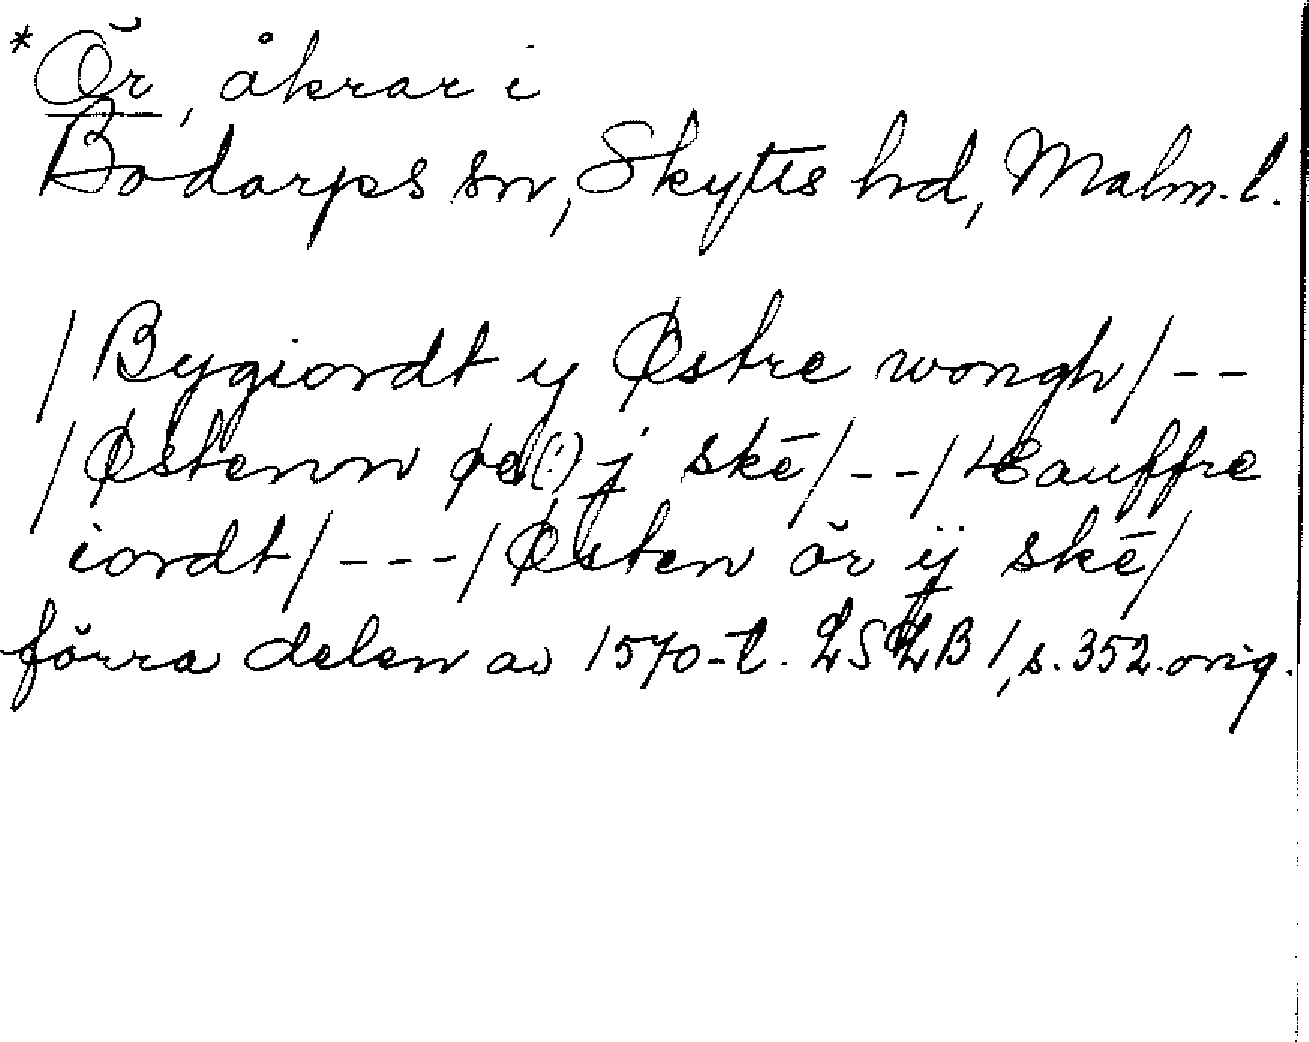 *Ör, åkrar i
Bodarps sn, Skytts hd, Malm. l.
/Bygiordt y Østre wongh/--
/Østenn øe(!) j skē/--/Hauffre
iordt/---/Østen ör ij skē/
förra delen av 1570-t. LSLB 1, s. 352. orig.